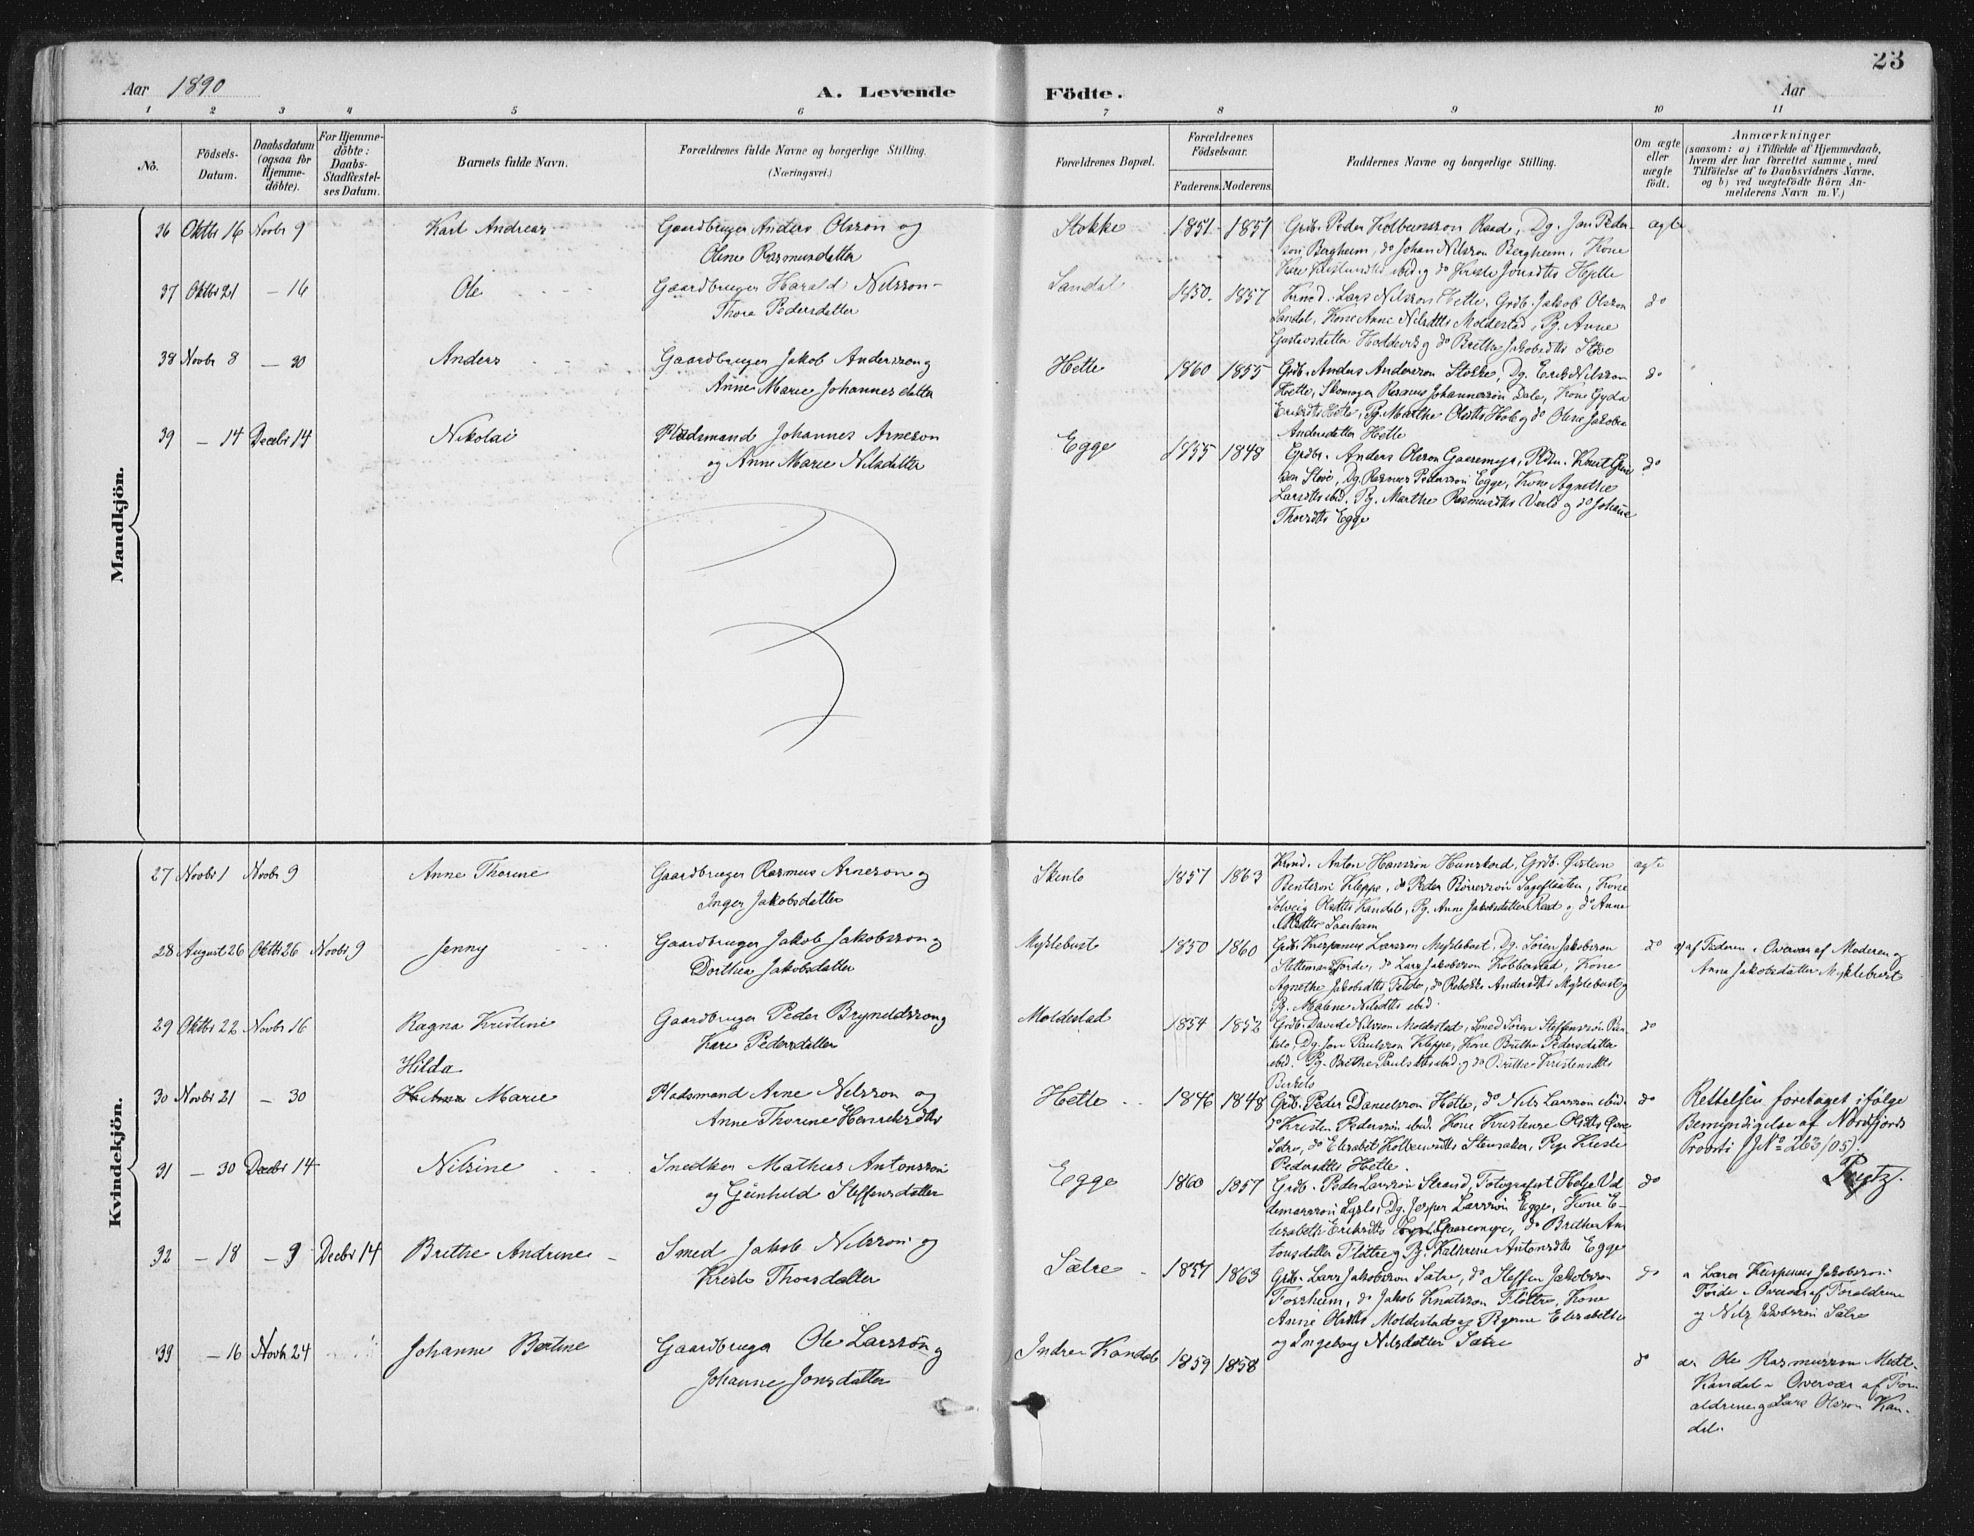 23
Aar 1890
A. Levende Födte.
Aar
1 2 3 4 5 6 7 8 9 10 11
No.
Födsels-Datum.
Daabsdatum (ogsaa for Hjemme-döbte).
For Hjemme-döbte: Daabs-Stadfæstel-ses Datum.
Barnets fulde Navn.
Forældrenes fulde Navne og borgerlige Stilling. (Næringsvei.)
Forældrenes Bopæl.
Forældrenes Födselsaar.
Faderens. Moderens.
Faddernes Navne og borgerlige Stilling.
Om ægte eller uægte födt.
Anmærkninger
(saasom: a) i Tilfælde af Hjemmedaab, hvem der har forrettet samme, med Tilföielse af to Daabsvidners Navne, og b) ved uægtefödte Börn An-melderens Navn m. V.)
Mandkjön.
36 Oktbr 16 Novbr 9 Karl Andreas Gaardbruger Anders Olsson og
Oline Rasmusdatter
Stokke 1851 1851
Grdb. Peder Kolbeinsson Raade, Dg. Jan Peder-
son Bergheim, do Johan Nilsson Bergheim, Kone
ibid. og do Kirste Jonsdtr Hjelle
ægte
37 Oktbr 21 - 16 Ole Gaardbruger Harald Nilsson
Thora Pedersdatter
Sandal 1850 1857
Lars Nilsson Hette, Grdb. Jakob Olsson
Sandal, Kone Anne Nilsdtr Moldestad, Pg. Anne
Gustavsdatter Hoddevik og do Brithe Jakobsdtr Støve
do
38 Novbr 8 - 30 Anders Gaardbruger Jakob Andersson og
Anne Marie Johannesdatter
Hette 1860 1855
Grdb. Anders Andersson Stokke, Dg. Erik Nilsson
Hette, Skomager Rasmus Johannesson Dale, Kone Gyda
Eriksdtr Hette, Pg. Marthe Olsdtr Hole og do Olina Jakobea
Andersdatter Hette
do
39 - 14 Decbr 14 Nikolai Pladsmand Johannes Arneson
og Anne Marie Nilsdatter
Egge 1855 1848
Grdbr. Anders Olsson Gaaremyr, Pldm. Knut
Støve, Dg. Rasmus Pedersson Egge, Kone Agnethe
Larsdtr ibid. Pg. Marthe Rasmusdtr og do Johanne
Thorsdtr Egge
do
Kvindekjön.
27 Novbr 1 Novbr 9 Anne Thorine Gaardbruger Rasmus Arneson og
Inger Jakobsdatter
Skenlo 1857 1863
Anton Hansson Hunskord, Grdb. Øistein
Benteson Kleppe, do Peder Børresson Sageflaaten, Kone
Solveig Olsdtr Kandal, Pg. Anne Jakobsdatter Reed og do Anne
Olsdtr Sanheim
ægte
28 August 26 Oktbr 26 Novbr 9 Jenny Gaardbruger Jakob Jakobsson og
Dorthea Jakobsdatter
Myklebust 1850 1860
Grdb. Kristpenus Larsson Myklebust, Dg. Søren Jakobsson
Førde, do Lars Jakobsson Kobberstad, Kone
Agnethe Jakobsdtr Førde, do Rebekka Andersdtr Myklebust og
Pg. Malene Nilsdtr ibid.
do
a) af Faderen i Overvær af Moderen og
Anna Jakobsdatter Myklebust
29 Oktbr 22 Novbr 16 Ragna Kristine Gaardbruger Peder Bryneldsson og
Kari Pedersdatter
Moldestad 1854 1852
Grdb. David Nilsson Moldestad, Smed Søren Steffensson Bir-
kelo, Dg. Jon Paulsson Kleppe, Kone Brithe Pedersdatter
ibid. Pg. Brithe Paulsdtr ibid. og do Brithe Kristensdtr
Birkelo
do
Hilda
30 Novbr 21 - 30 Helma Marie Pladsmand Arne Nilsson og
Anne Thorine Henriksdtr
Hette 1846 1848
Grdb. Peder Danielsson Hette, do Nils Larsson ibid.
do Kristen Pedersson ibid. Kone Kristense Olsdtr Øvre
Sætre, do Elisabet Kolbeinsdtr Stensaker, Pige Kirste
Pedersdtr Hette.
do
Rettelsen foretaget ifølge
Bemyndigelse af Nordfjords
Provsti J No 263/05).
31 - 30 Decbr 14 Nilsine Snedker Mathias Antonsson
og Gunhild Steffensdatter
Egge 1860 1857
Grdb. Peder Larsson Strand, Fotografist Helje Val-
demarsson Lyslo, Dg. Jesper Larsson Egge, Kone E-
lisabeth Eriksdtr Gaaremyr, do Brithe An-
tonsdatter Fløtre og Pg. Kathrine Antonsdtr Egge
do
32 - 18 - 9 Decbr 14 Brithe Andrine Smed Jakob Nilsson og
Kirste Thorsdatter
Sætre 1857 1863
Grdb. Lars Jakobsson Sætre, do Steffen Jakobsson
Forsheim, do Jakob Knutsson Fløtre, Kone
Anne Olsdtr Moldestad og Pigerne Elisabethe
og Ingeborg Nilsdatter Sætre
do
a Lærer Krispenus Jakobsson
Førde i Overvær af Forældrene
og Nils Jakobsson Sætre
33 - 16 Novbr 24 Johanne Bertine Gaardbruger Ole Larsson og
Johanne Jonsdatter
Indre Kandal 1859 1858
do
a. Ole Rasmusson Midt-
Kandal i Overvær af For-
ældrene og Lars Olsson Kan-
dal.